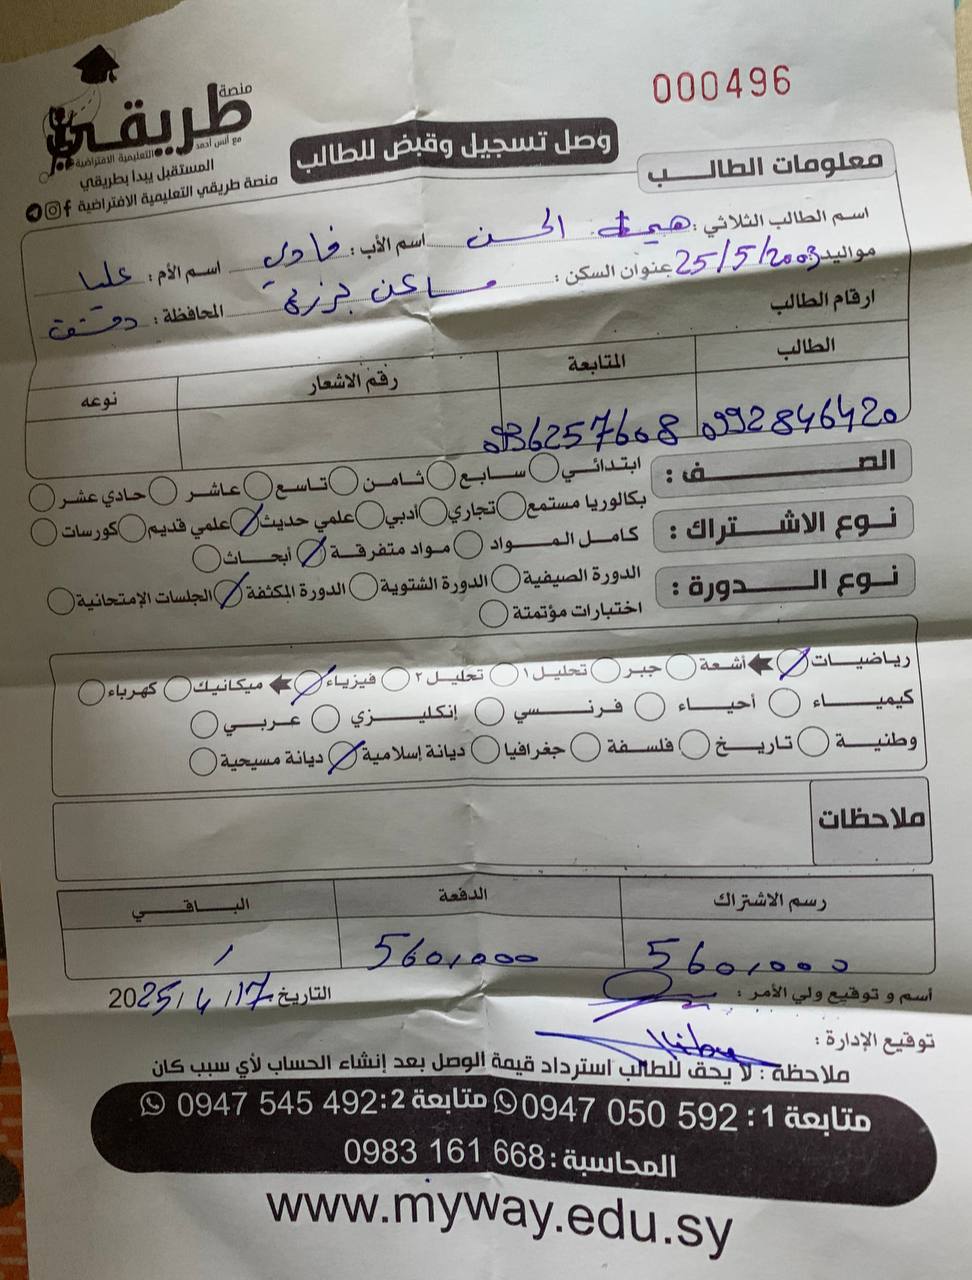 000496
منصة
طريقي
مع أنس أحمد
التعليمية الافتراضية
المستقبل يبدأ بطريقي
منصة طريقي التعليمية الافتراضية
وصل تسجيل وقبض للطالب
معلومات الطالب
اسم الطالب الثلاثي: الحسن اسم الأب: فادي اسم الأم: عليا
مواليد 25/5/2003 عنوان السكن: مساكن برزة المحافظة: دمشق
ارقام الطالب
الطالب المتابعة رقم الاشعار نوعه
0992846420 0936257608
الصف: ابتدائي سابع ثامن تاسع عاشر حادي عشر
بكالوريا مستمع تجاري أدبي علمي حديث علمي قديم كورسات
نوع الاشتراك: كامل المواد مواد متفرقة أبحاث
نوع الدورة: الدورة الصيفية الدورة الشتوية الدورة المكثفة الجلسات الإمتحانية
اختبارات مؤتمتة
رياضيات أشعة جبر تحليل ١ تحليل ٢ فيزياء ميكانيك كهرباء
كيمياء أحياء فرنسي إنكليزي عربي
وطنية تاريخ فلسفة جغرافيا ديانة إسلامية ديانة مسيحية
ملاحظات
رسم الاشتراك الدفعة الباقي
560,000 560,000 /
أسم و توقيع ولي الأمر: التاريخ 2025/4/17
توقيع الإدارة:
ملاحظة: لا يحق للطالب أسترداد قيمة الوصل بعد إنشاء الحساب لأي سبب كان
متابعة 1: 0947 050 592 متابعة 2: 0947 545 492
المحاسبة: 0983 161 668
www.myway.edu.sy